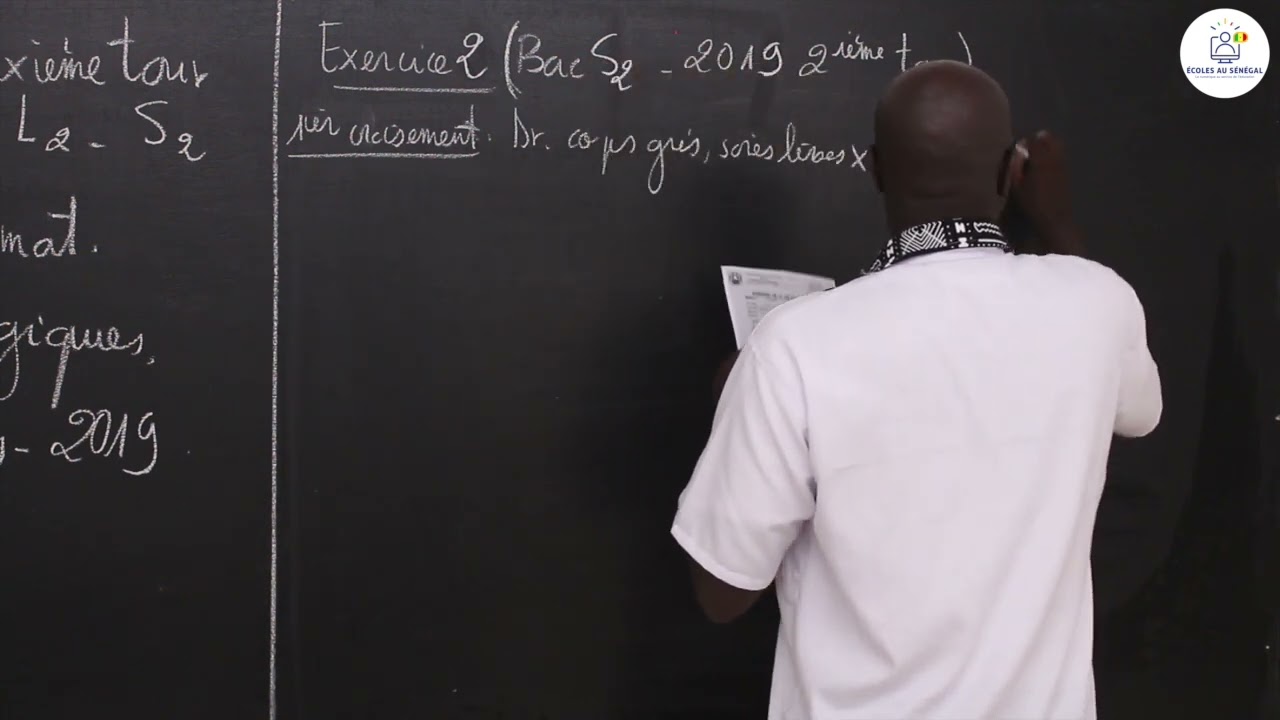 xième tour
L2 - S2
mat.
giques,
- 2019
Exercice 2 (Bac S2 - 2019 2ième to )
1er croisement : Dr. corps gris, soies lisses x
ÉCOLES AU SÉNÉGAL